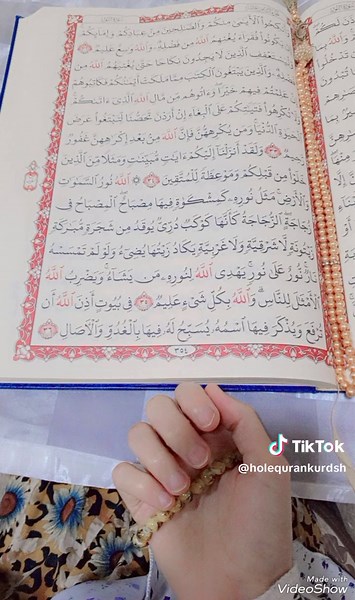 ٱلْأَيَٰمَىٰ مِنكُمْ وَٱلصَّٰلِحِينَ مِنْ عِبَادِكُمْ وَإِمَآئِكُمْ
يَكُونُوا۟ فُقَرَآءَ يُغْنِهِمُ ٱللَّهُ مِن فَضْلِهِۦ وَٱللَّهُ وَٰسِعٌ عَلِيمٌ ٣٢
ٱلَّذِينَ لَا يَجِدُونَ نِكَاحًا حَتَّىٰ يُغْنِيَهُمُ ٱللَّهُ
وَٱلَّذِينَ يَبْتَغُونَ ٱلْكِتَٰبَ مِمَّا مَلَكَتْ أَيْمَٰنُكُمْ فَكَاتِبُوهُمْ
عَلِمْتُمْ فِيهِمْ خَيْرًا وَءَاتُوهُم مِّن مَّالِ ٱللَّهِ ٱلَّذِىٓ ءَاتَىٰكُمْ
تُكْرِهُوا۟ فَتَيَٰتِكُمْ عَلَى ٱلْبِغَآءِ إِنْ أَرَدْنَ تَحَصُّنًا لِّتَبْتَغُوا۟ عَرَضَ
ٱلْحَيَوٰةِ ٱلدُّنْيَا وَمَن يُكْرِههُّنَّ فَإِنَّ ٱللَّهَ مِنۢ بَعْدِ إِكْرَٰهِهِنَّ غَفُورٌ
رَّحِيمٌ ٣٣ وَلَقَدْ أَنزَلْنَآ إِلَيْكُمْ ءَايَٰتٍ مُّبَيِّنَٰتٍ وَمَثَلًا مِّنَ ٱلَّذِينَ
خَلَوْا۟ مِن قَبْلِكُمْ وَمَوْعِظَةً لِّلْمُتَّقِينَ ٣٤ ٱللَّهُ نُورُ ٱلسَّمَٰوَٰتِ
وَٱلْأَرْضِ مَثَلُ نُورِهِۦ كَمِشْكَوٰةٍ فِيهَا مِصْبَاحٌ ٱلْمِصْبَاحُ فِى
زُجَاجَةٍ ٱلزُّجَاجَةُ كَأَنَّهَا كَوْكَبٌ دُرِّىٌّ يُوقَدُ مِن شَجَرَةٍ مُّبَٰرَكَةٍ
زَيْتُونَةٍ لَّا شَرْقِيَّةٍ وَلَا غَرْبِيَّةٍ يَكَادُ زَيْتُهَا يُضِىٓءُ وَلَوْ لَمْ تَمْسَسْهُ
نَارٌ نُّورٌ عَلَىٰ نُورٍ يَهْدِى ٱللَّهُ لِنُورِهِۦ مَن يَشَآءُ وَيَضْرِبُ ٱللَّهُ
ٱلْأَمْثَٰلَ لِلنَّاسِ وَٱللَّهُ بِكُلِّ شَىْءٍ عَلِيمٌ ٣٥ فِى بُيُوتٍ أَذِنَ ٱللَّهُ أَن
تُرْفَعَ وَيُذْكَرَ فِيهَا ٱسْمُهُۥ يُسَبِّحُ لَهُۥ فِيهَا بِٱلْغُدُوِّ وَٱلْءَاصَالِ ٣٦
٣٥٤
TikTok
@holequrankurdsh
Made with
VideoShow